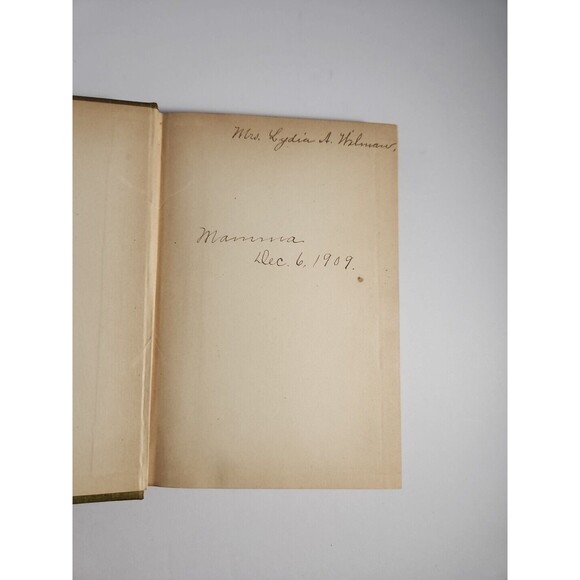 Mrs. Lydia A. Wilman.
Mamma
Dec. 6, 1909.